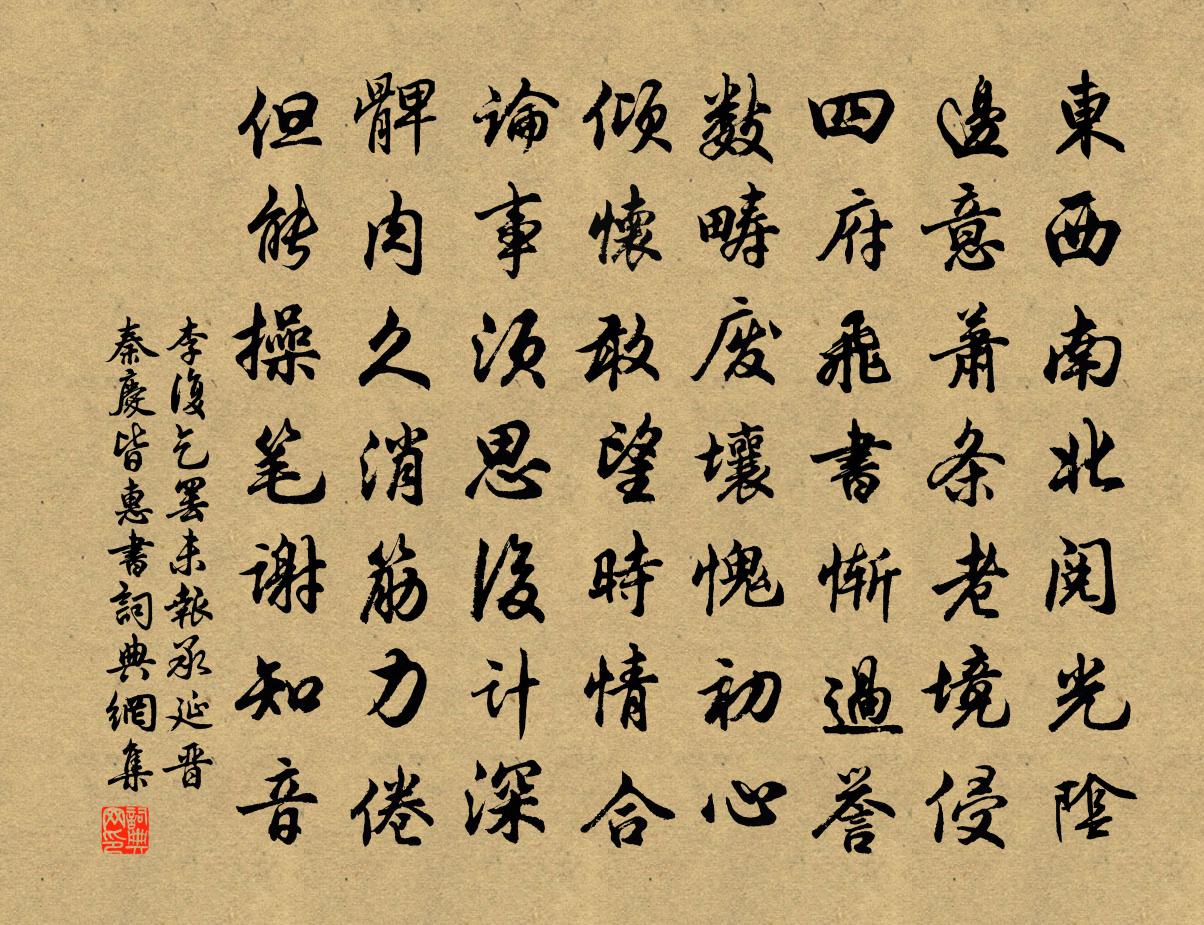 東西南北閱光陰
邊意蕭条老境侵
四府飛書慚過譽
數疇廢壞愧初心
傾懷敢望時情合
論事須思後計深
髀肉久消筋力倦
但能操笔謝知音
李復乞罢未報承延晋
秦慶皆惠書詞典網集
詞典网印